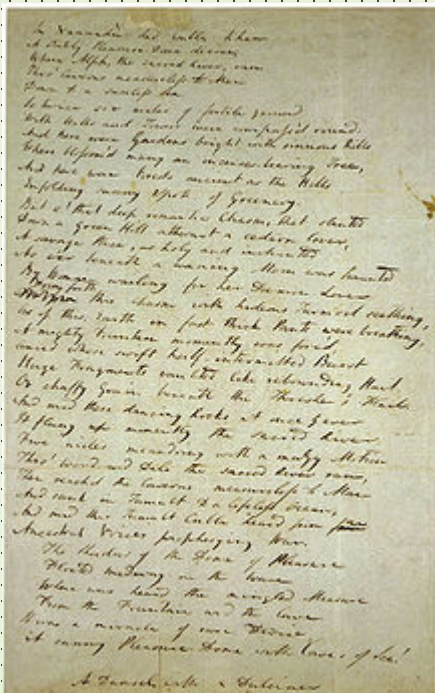 In Xannadù did Cubla Khan
A stately Pleasure Dome decree;
Where Alph, the sacred River, ran
Thro' Caverns measureless to Man
Down to a sunless Sea.
So twice six miles of fertile ground
With Walls and Towers were compass'd round:
And here were Gardens bright with sinuous Rills
Where blossom'd many an incense-bearing Tree,
And here were Forests ancient as the Hills
Enfolding sunny Spots of Greenery.
But o! that deep romantic Chasm, that slanted
Down a green Hill athwart a cedarn Cover,
A savage Place, as holy and inchanted
As e'er beneath a waning Moon was haunted
By Woman wailing for her Daemon Lover:
From forth this Chasm with hideous Turmoil seething,
As if this Earth in fast thick Pants were breathing,
A mighty Fountain momently was forc'd,
Amid whose swift half-intermitted Burst
Huge Fragments vaulted like rebounding Hail,
Or chaffy Grain beneath the Thresher's Flail.
And mid these dancing Rocks at once & ever
It flung up momently the sacred River.
Five miles meandring with a mazy Motion
Thro' Wood and Dale the sacred River ran,
Then reach'd the Caverns measureless to Man
And sank in Tumult to a lifeless Ocean;
And mid this Tumult Cubla heard from far
Ancestral Voices prophesying War.
The Shadow of the Dome of Pleasure
Floated midway on the Wave
Where was heard the mingled Measure
From the Fountain and the Cave.
It was a miracle of rare Device,
A sunny Pleasure-Dome with Caves of Ice!
A Damsel with a Dulcimer